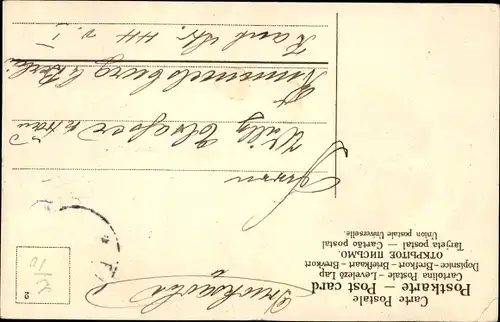 Drucksache
Carte Postale
Postkarte — Post card
Cartolina Postale — Levelező Lap
Dopisnice — Brefkort — Briefkaart — Brevkort
ОТКРЫТОЕ ПИСЬМО.
Tarjeta postal — Cartão postal
Union postale Universelle.
2
Herrn
Willy
Rummelsburg b. Berlin
Kant Str. 44 v. I